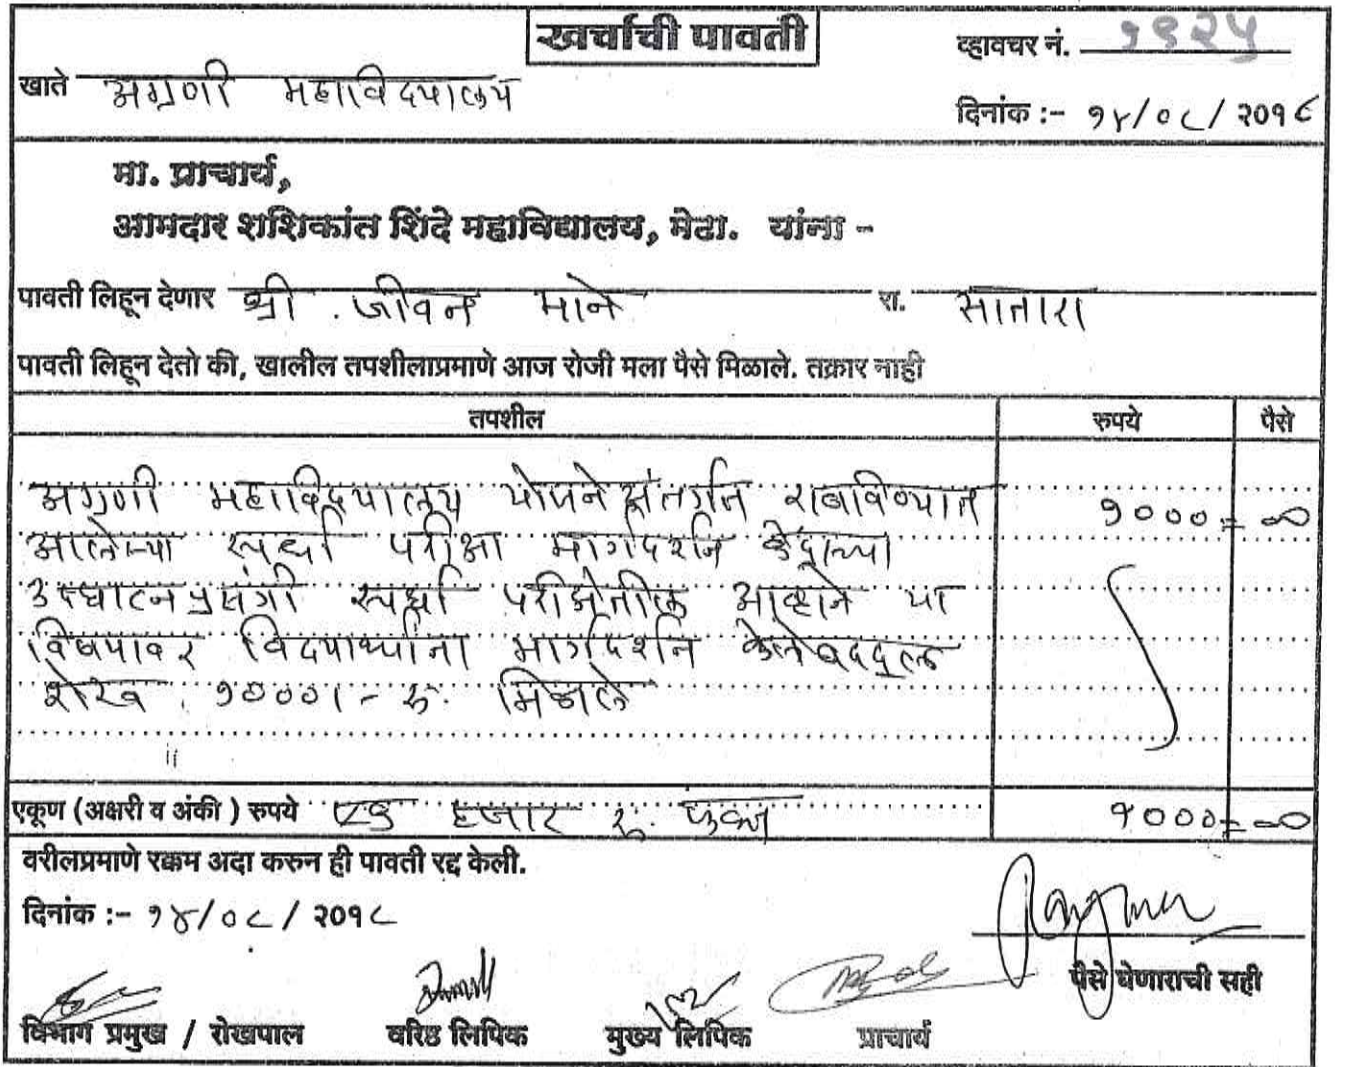 खर्चाची पावती
व्हावचर नं. १९२५
खाते अग्रणी महाविद्यालय
दिनांक :- १४/०८/२०१८
मा. प्राचार्य,
आमदार शशिकांत शिंदे महाविद्यालय, मेढा. यांना -
पावती लिहून देणार श्री. जीवन माने रा. सातारा
पावती लिहून देतो की, खालील तपशीलाप्रमाणे आज रोजी मला पैसे मिळाले. तक्रार नाही
तपशील रुपये पैसे
अग्रणी महाविद्यालय योजने अंतर्गत राबविण्यात १०००=००
आलेल्या स्पर्धा परीक्षा मार्गदर्शन केंद्राच्या
उदघाटन प्रसंगी स्पर्धा परीक्षेतील आव्हाने या
विषयावर विद्यार्थ्यांना मार्गदर्शन केलेबद्दल
रोख १०००/- रु. मिळाले
एकूण (अक्षरी व अंकी ) रुपये एक हजार रु. फक्त १०००=००
वरीलप्रमाणे रक्कम अदा करुन ही पावती रद्द केली.
दिनांक :- १४/०८/२०१८
पैसे घेणाराची सही
विभाग प्रमुख / रोखपाल वरिष्ठ लिपिक मुख्य लिपिक प्राचार्य